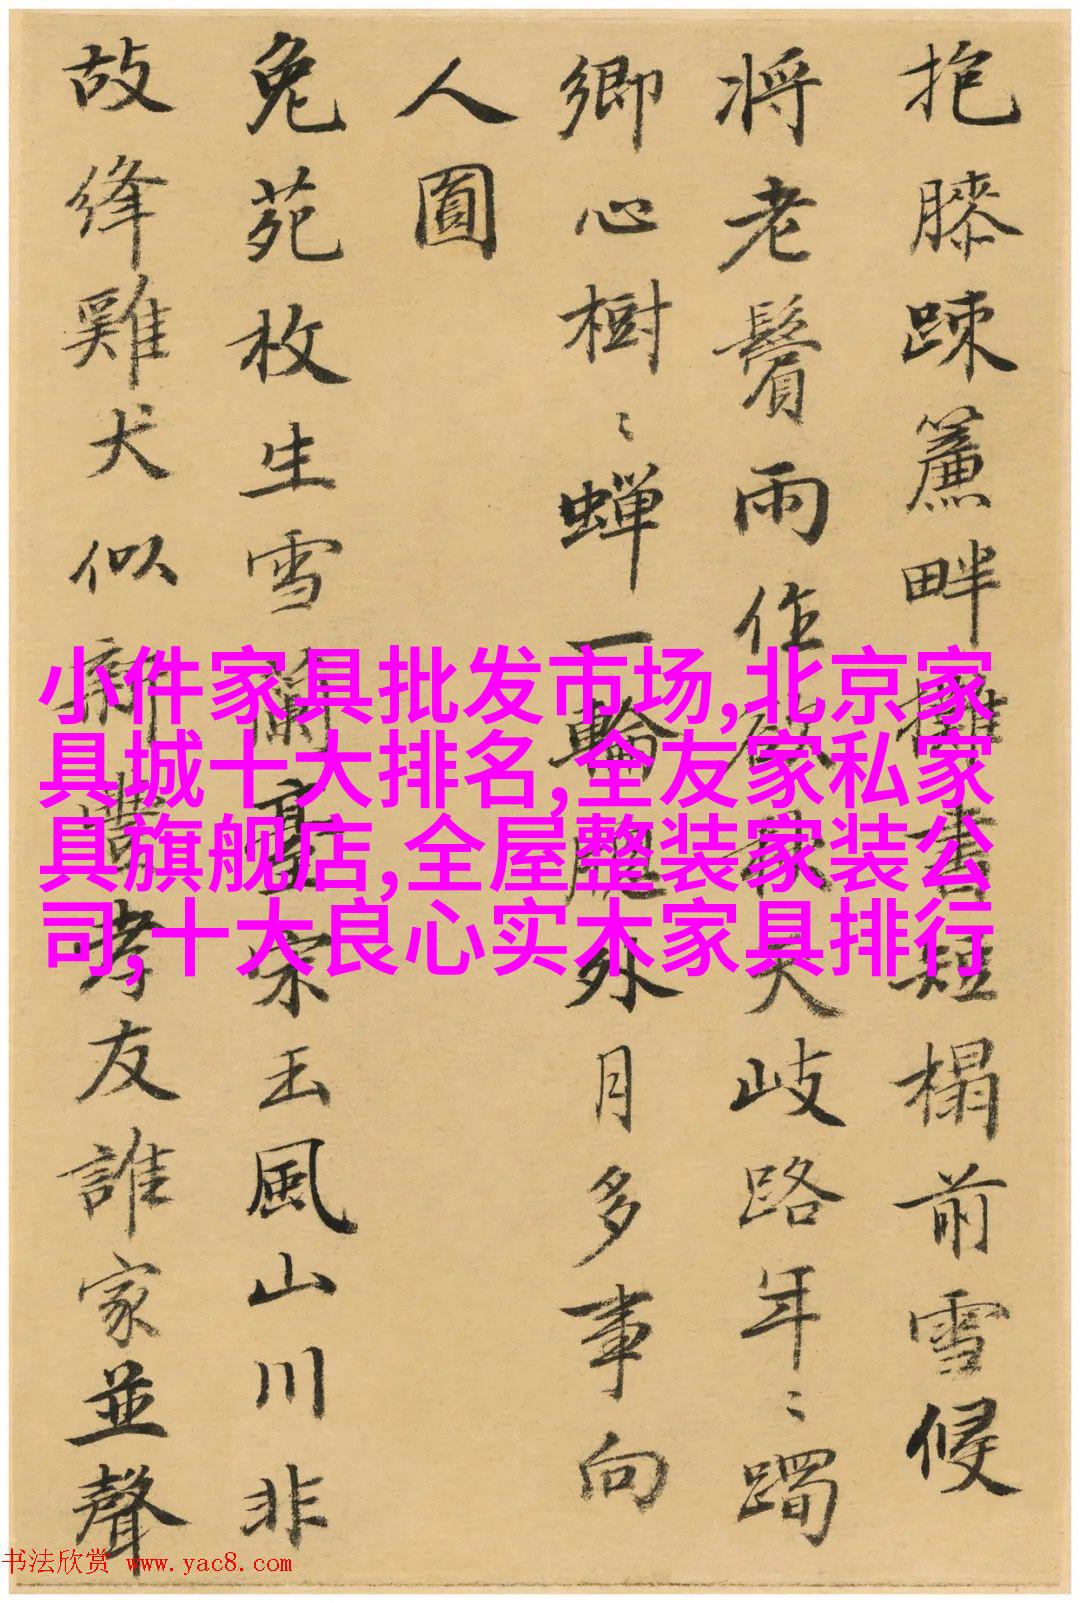 抱膝疎簾畔擁書短榻前雪候
将老鬢雨作衣天岐路年〻躅
鄉心樹〻蝉一輪外月多事向
人圓
兔苑枚生雪蘭臺宋玉風山川非
故绛雞犬似新豐孝友誰家並聲
小件家具批发市场,北京家
具城十大排名,全友家私家
具旗舰店,全屋整装家装公
司,十大良心实木家具排行
书法欣赏 www.yac8.com